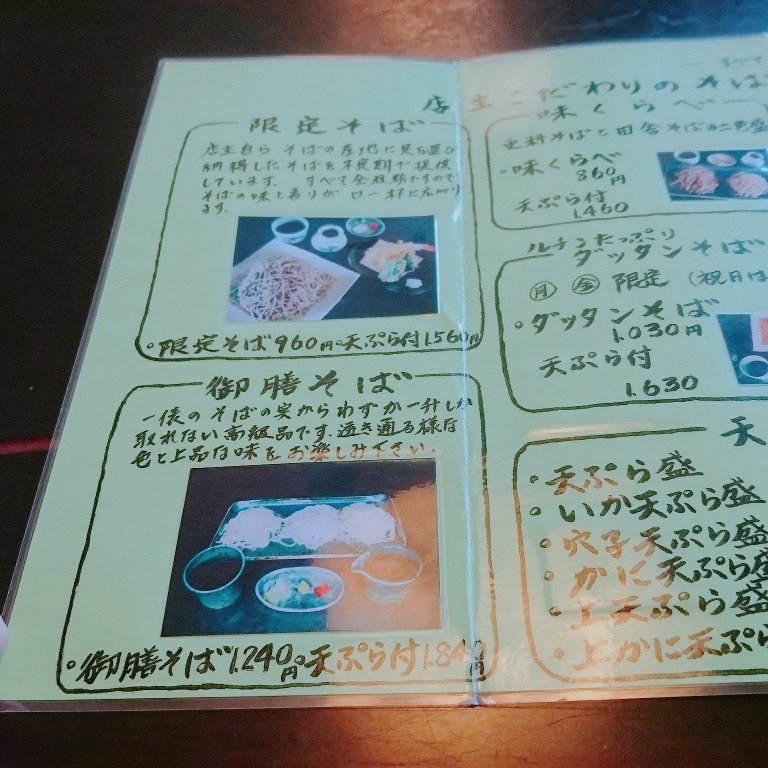 すべて
店主こだわりのそば
限定そば
店主自ら そばの産地に足を運び
納得したそばを不定期で提供
しています。 すべて全粒粉ですので
そばの味と香りが 口一杯に広がり
ます。
・限定そば960円 ・天ぷら付1,560円
御膳そば
一俵のそばの実からわずか一升しか
取れない高級品です。透き通る様な
色と上品な味をお楽しみ下さい。
・御膳そば1,240円 ・天ぷら付1,840円
味くらべ
更科そばと田舎そばの二色盛
・味くらべ
860円
天ぷら付
1,460
ルチンたっぷり
ダッタンそば
月 金 限定 (祝日は
・ダッタンそば
1,030円
天ぷら付
1,630
天
・天ぷら盛
・いか天ぷら盛
・穴子天ぷら盛
・かに天ぷら盛
・上天ぷら盛
・上かに天ぷら